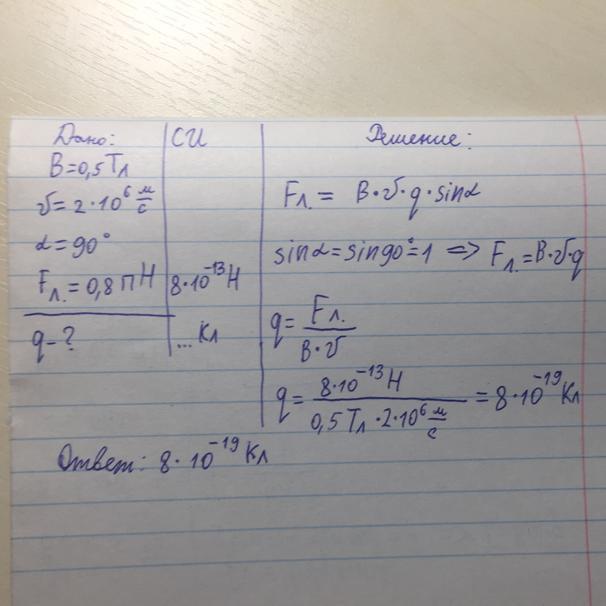 Дано:
B=0,5Тл
v=2·10⁶ м/с
α=90°
Fл.=0,8пН
q-?
СИ
8·10⁻¹³Н
...Кл
Решение:
Fл.= B·v·q·sinα
sinα=sin90°=1 => Fл.=B·v·q
q= Fл. / B·v
q= 8·10⁻¹³Н / 0,5Тл·2·10⁶ м/с = 8·10⁻¹⁹Кл
Ответ: 8·10⁻¹⁹Кл